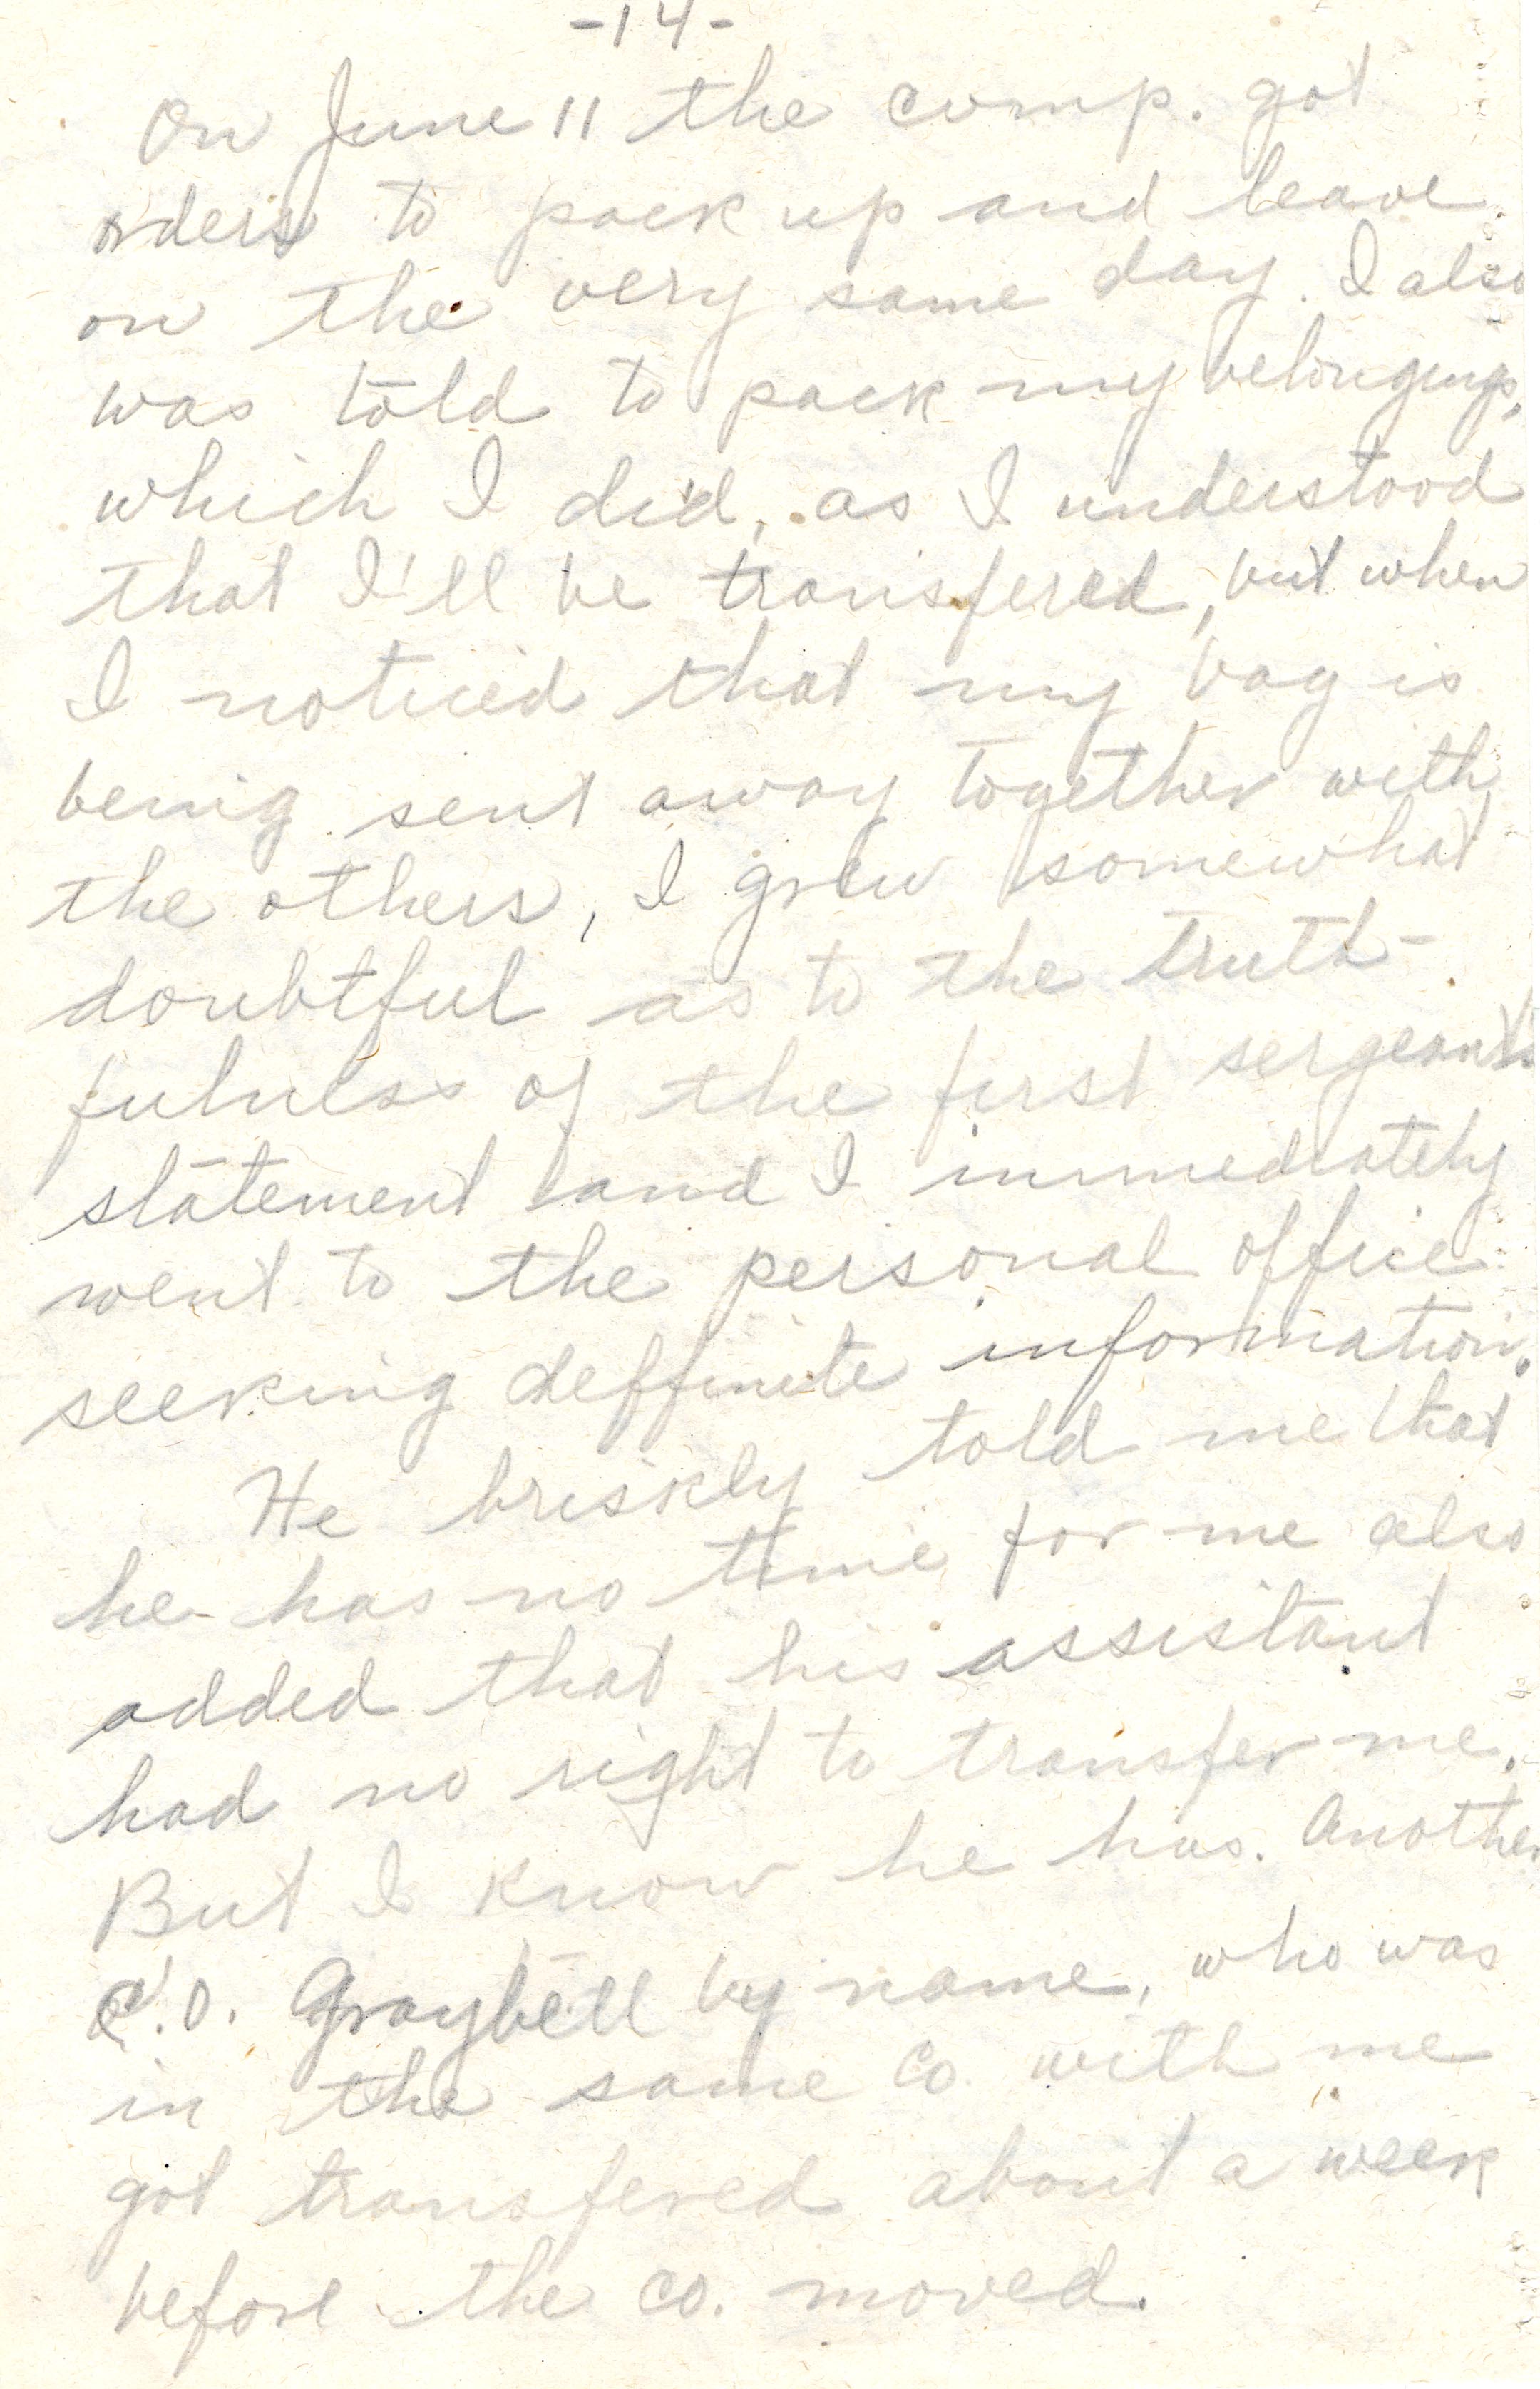 -14-
On June 11 the comp. got
orders to pack up and leave
on the very same day. I also
was told to pack my belongings,
which I did, as I understood
that I'll be transfered, but when
I noticed that my bag is
being sent away together with
the others, I grew somewhat
doubtful as to the truth-
fulness of the first sergeant's
statement and I immediately
went to the personal office
seeking deffinite information.
He briskly told me that
he has no time for me also
added that his assistant
had no right to transfer me.
But I know he has. Another
C.O. Graybell by name, who was
in the same Co. with me
got transfered about a week
before the co. moved.